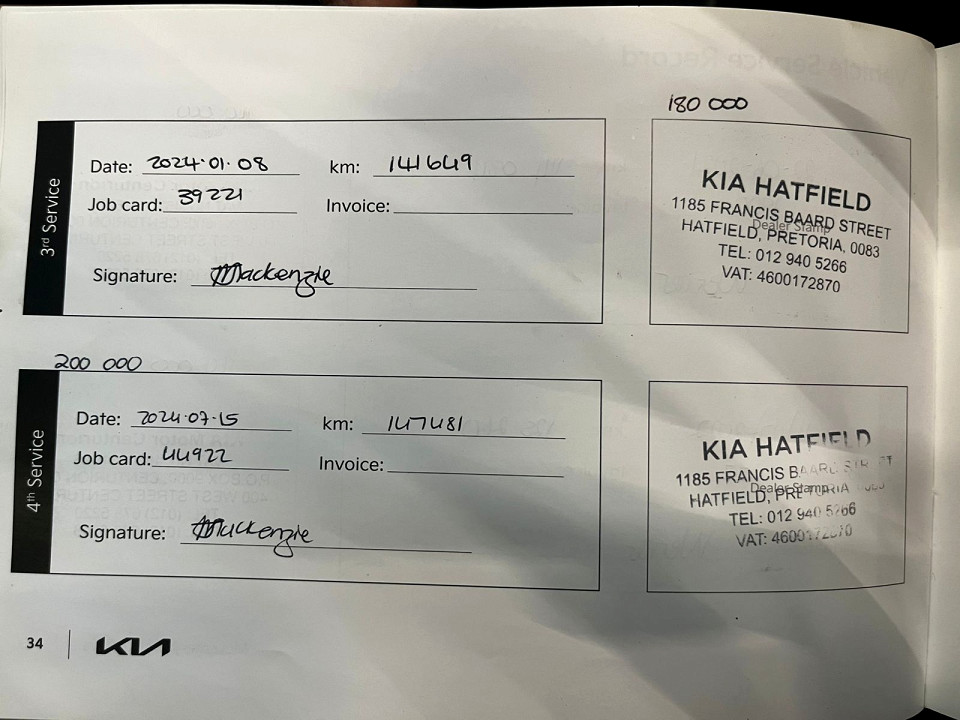 180 000
3rd Service
Date: 2024.01.08 km: 141649
Job card: 39221 Invoice:
Signature: Mackenzie
KIA HATFIELD
1185 FRANCIS BAARD STREET
Dealer Stamp
HATFIELD, PRETORIA, 0083
TEL: 012 940 5266
VAT: 4600172870
200 000
4th Service
Date: 2024.07.15 km: 147481
Job card: 44922 Invoice:
Signature: Mackenzie
KIA HATFIELD
1185 FRANCIS BAARD STREET
Dealer Stamp
HATFIELD, PRETORIA
TEL: 012 940 5266
VAT: 4600172870
34 KIA